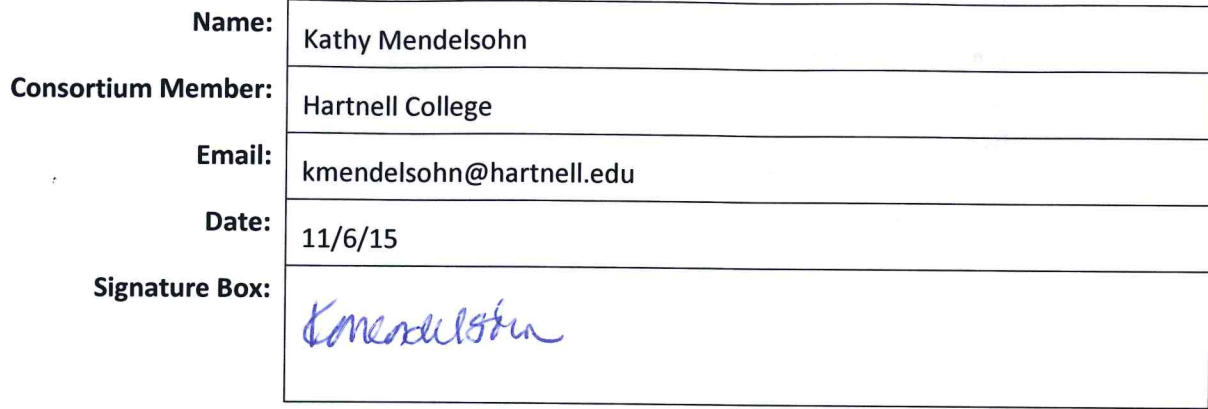 Name: Kathy Mendelsohn
Consortium Member: Hartnell College
Email: kmendelsohn@hartnell.edu
Date: 11/6/15
Signature Box: KMendelsohn